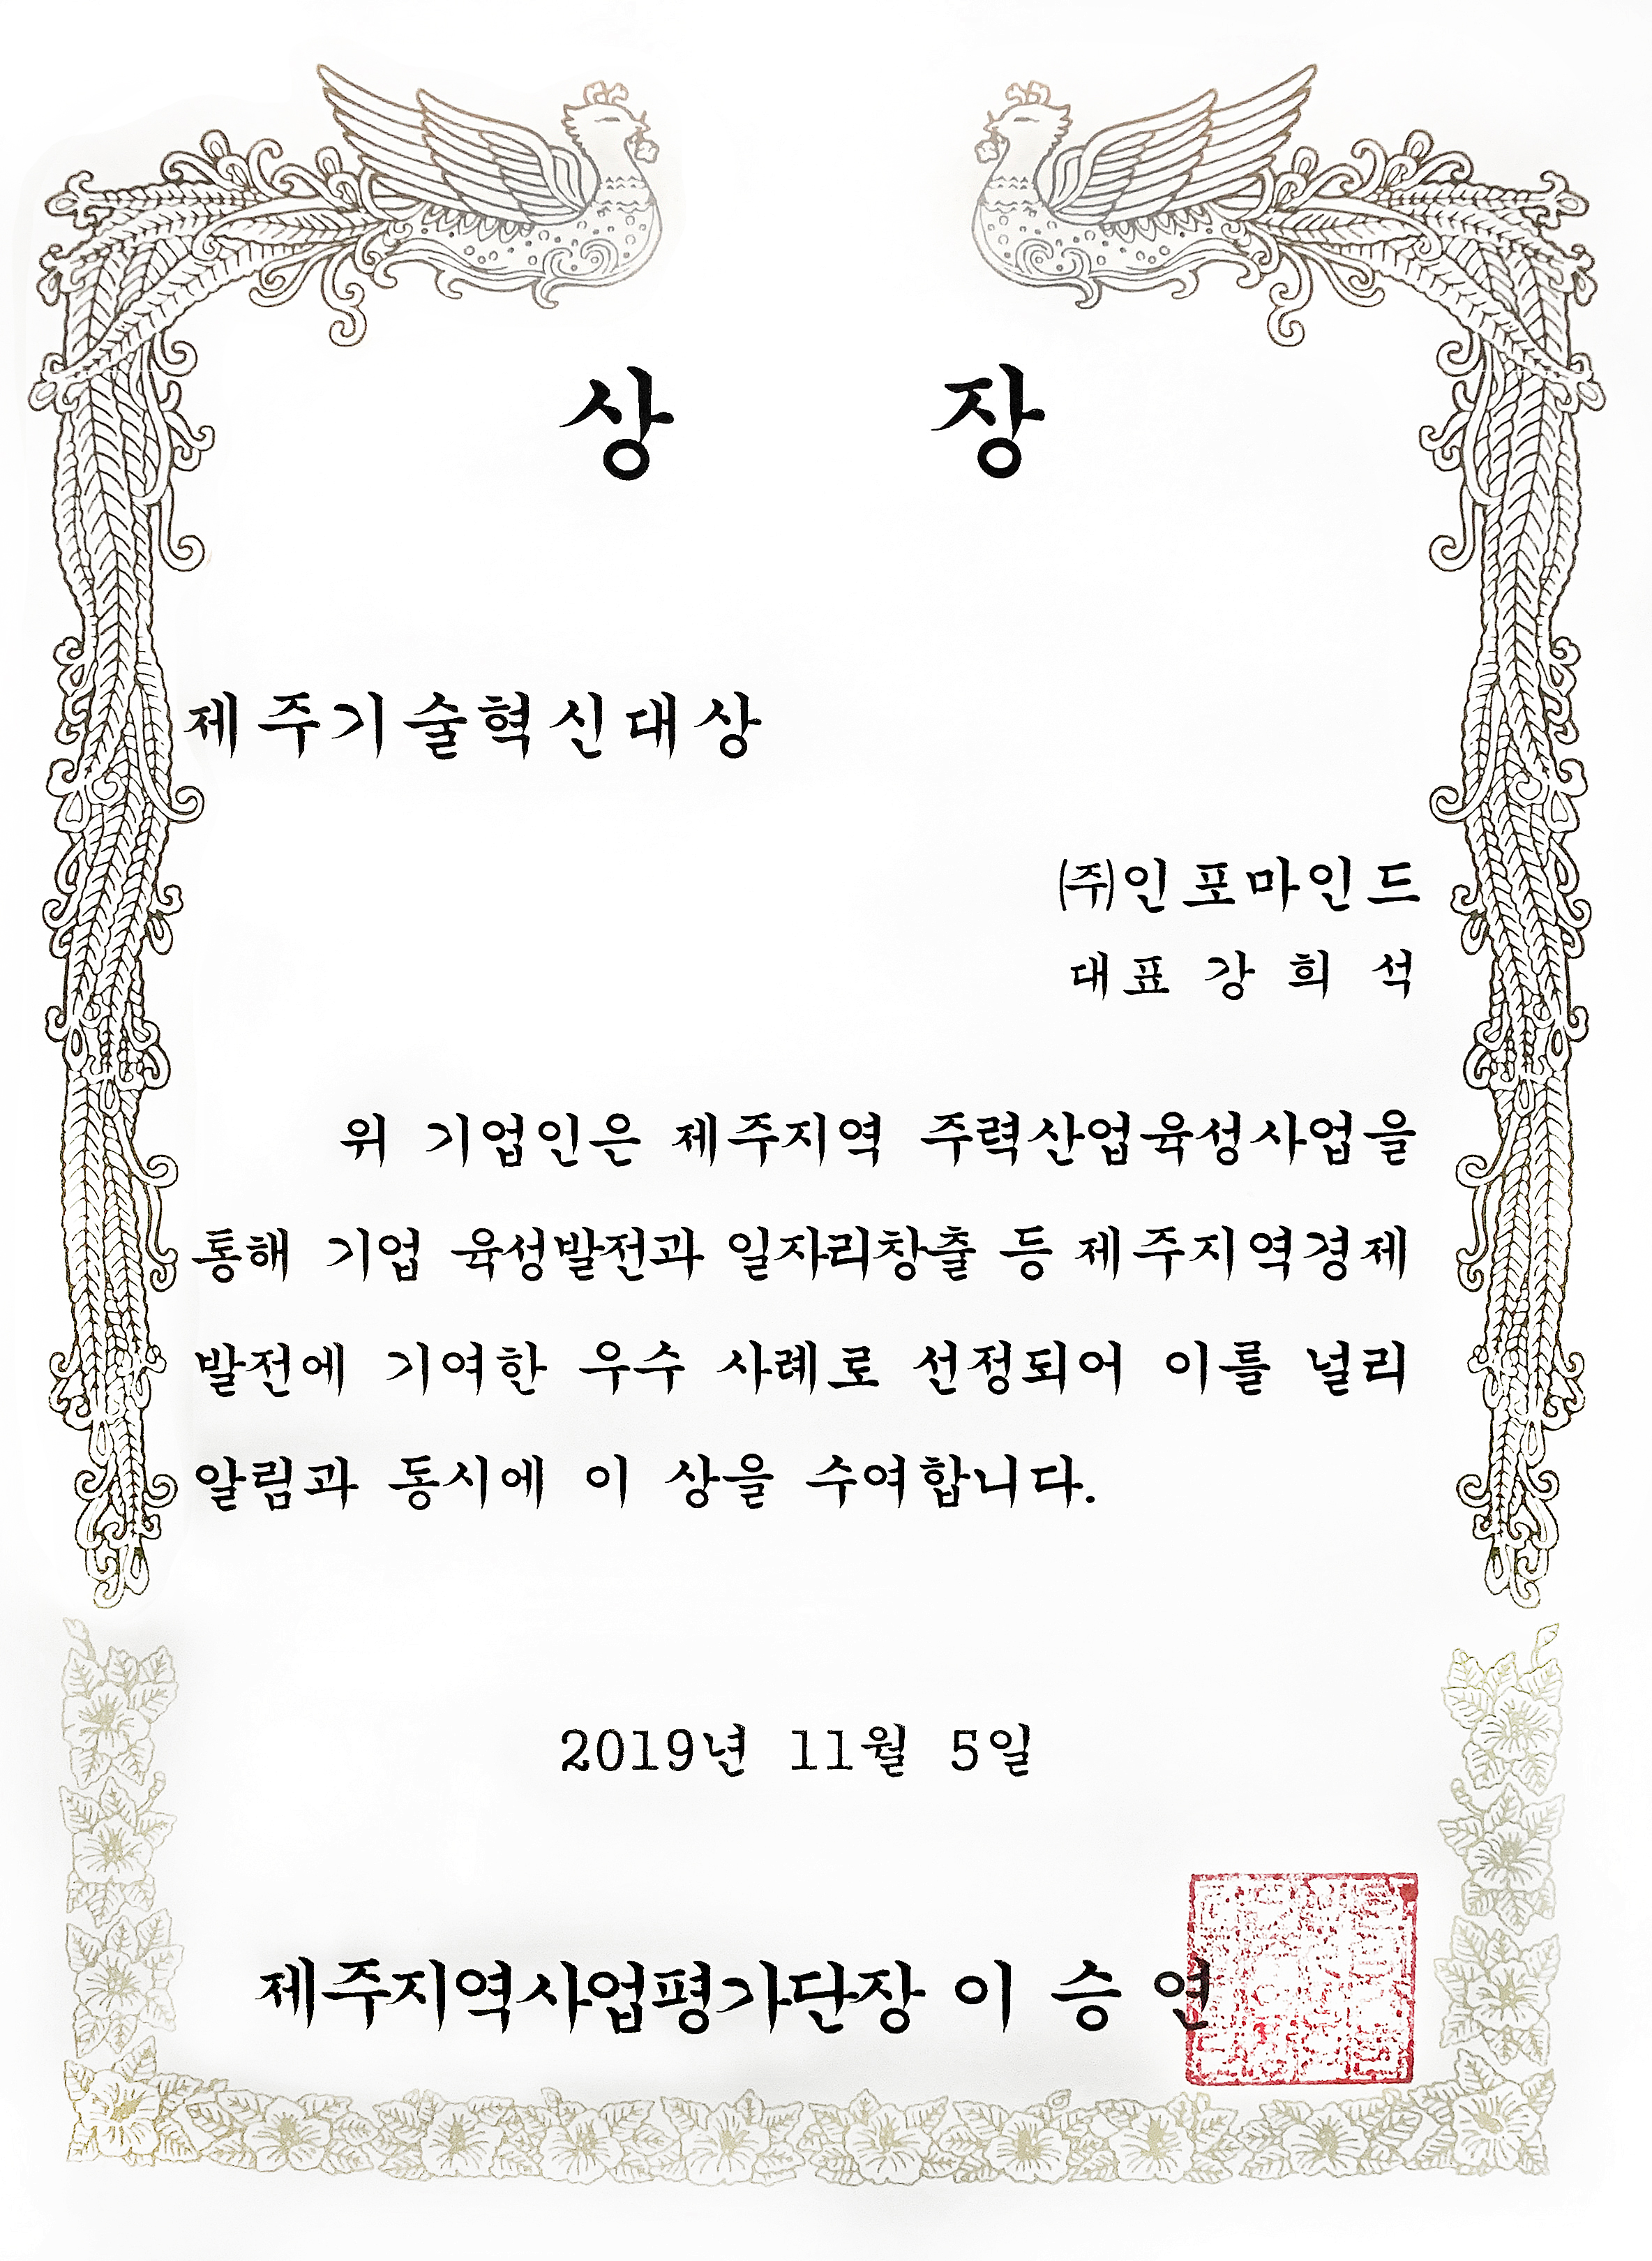 상 장
제주기술혁신대상
㈜인포마인드
대표 강 희 석
위 기업인은 제주지역 주력산업육성사업을
통해 기업 육성발전과 일자리창출 등 제주지역경제
발전에 기여한 우수 사례로 선정되어 이를 널리
알림과 동시에 이 상을 수여합니다.
2019년 11월 5일
제주지역사업평가단장 이 승 연